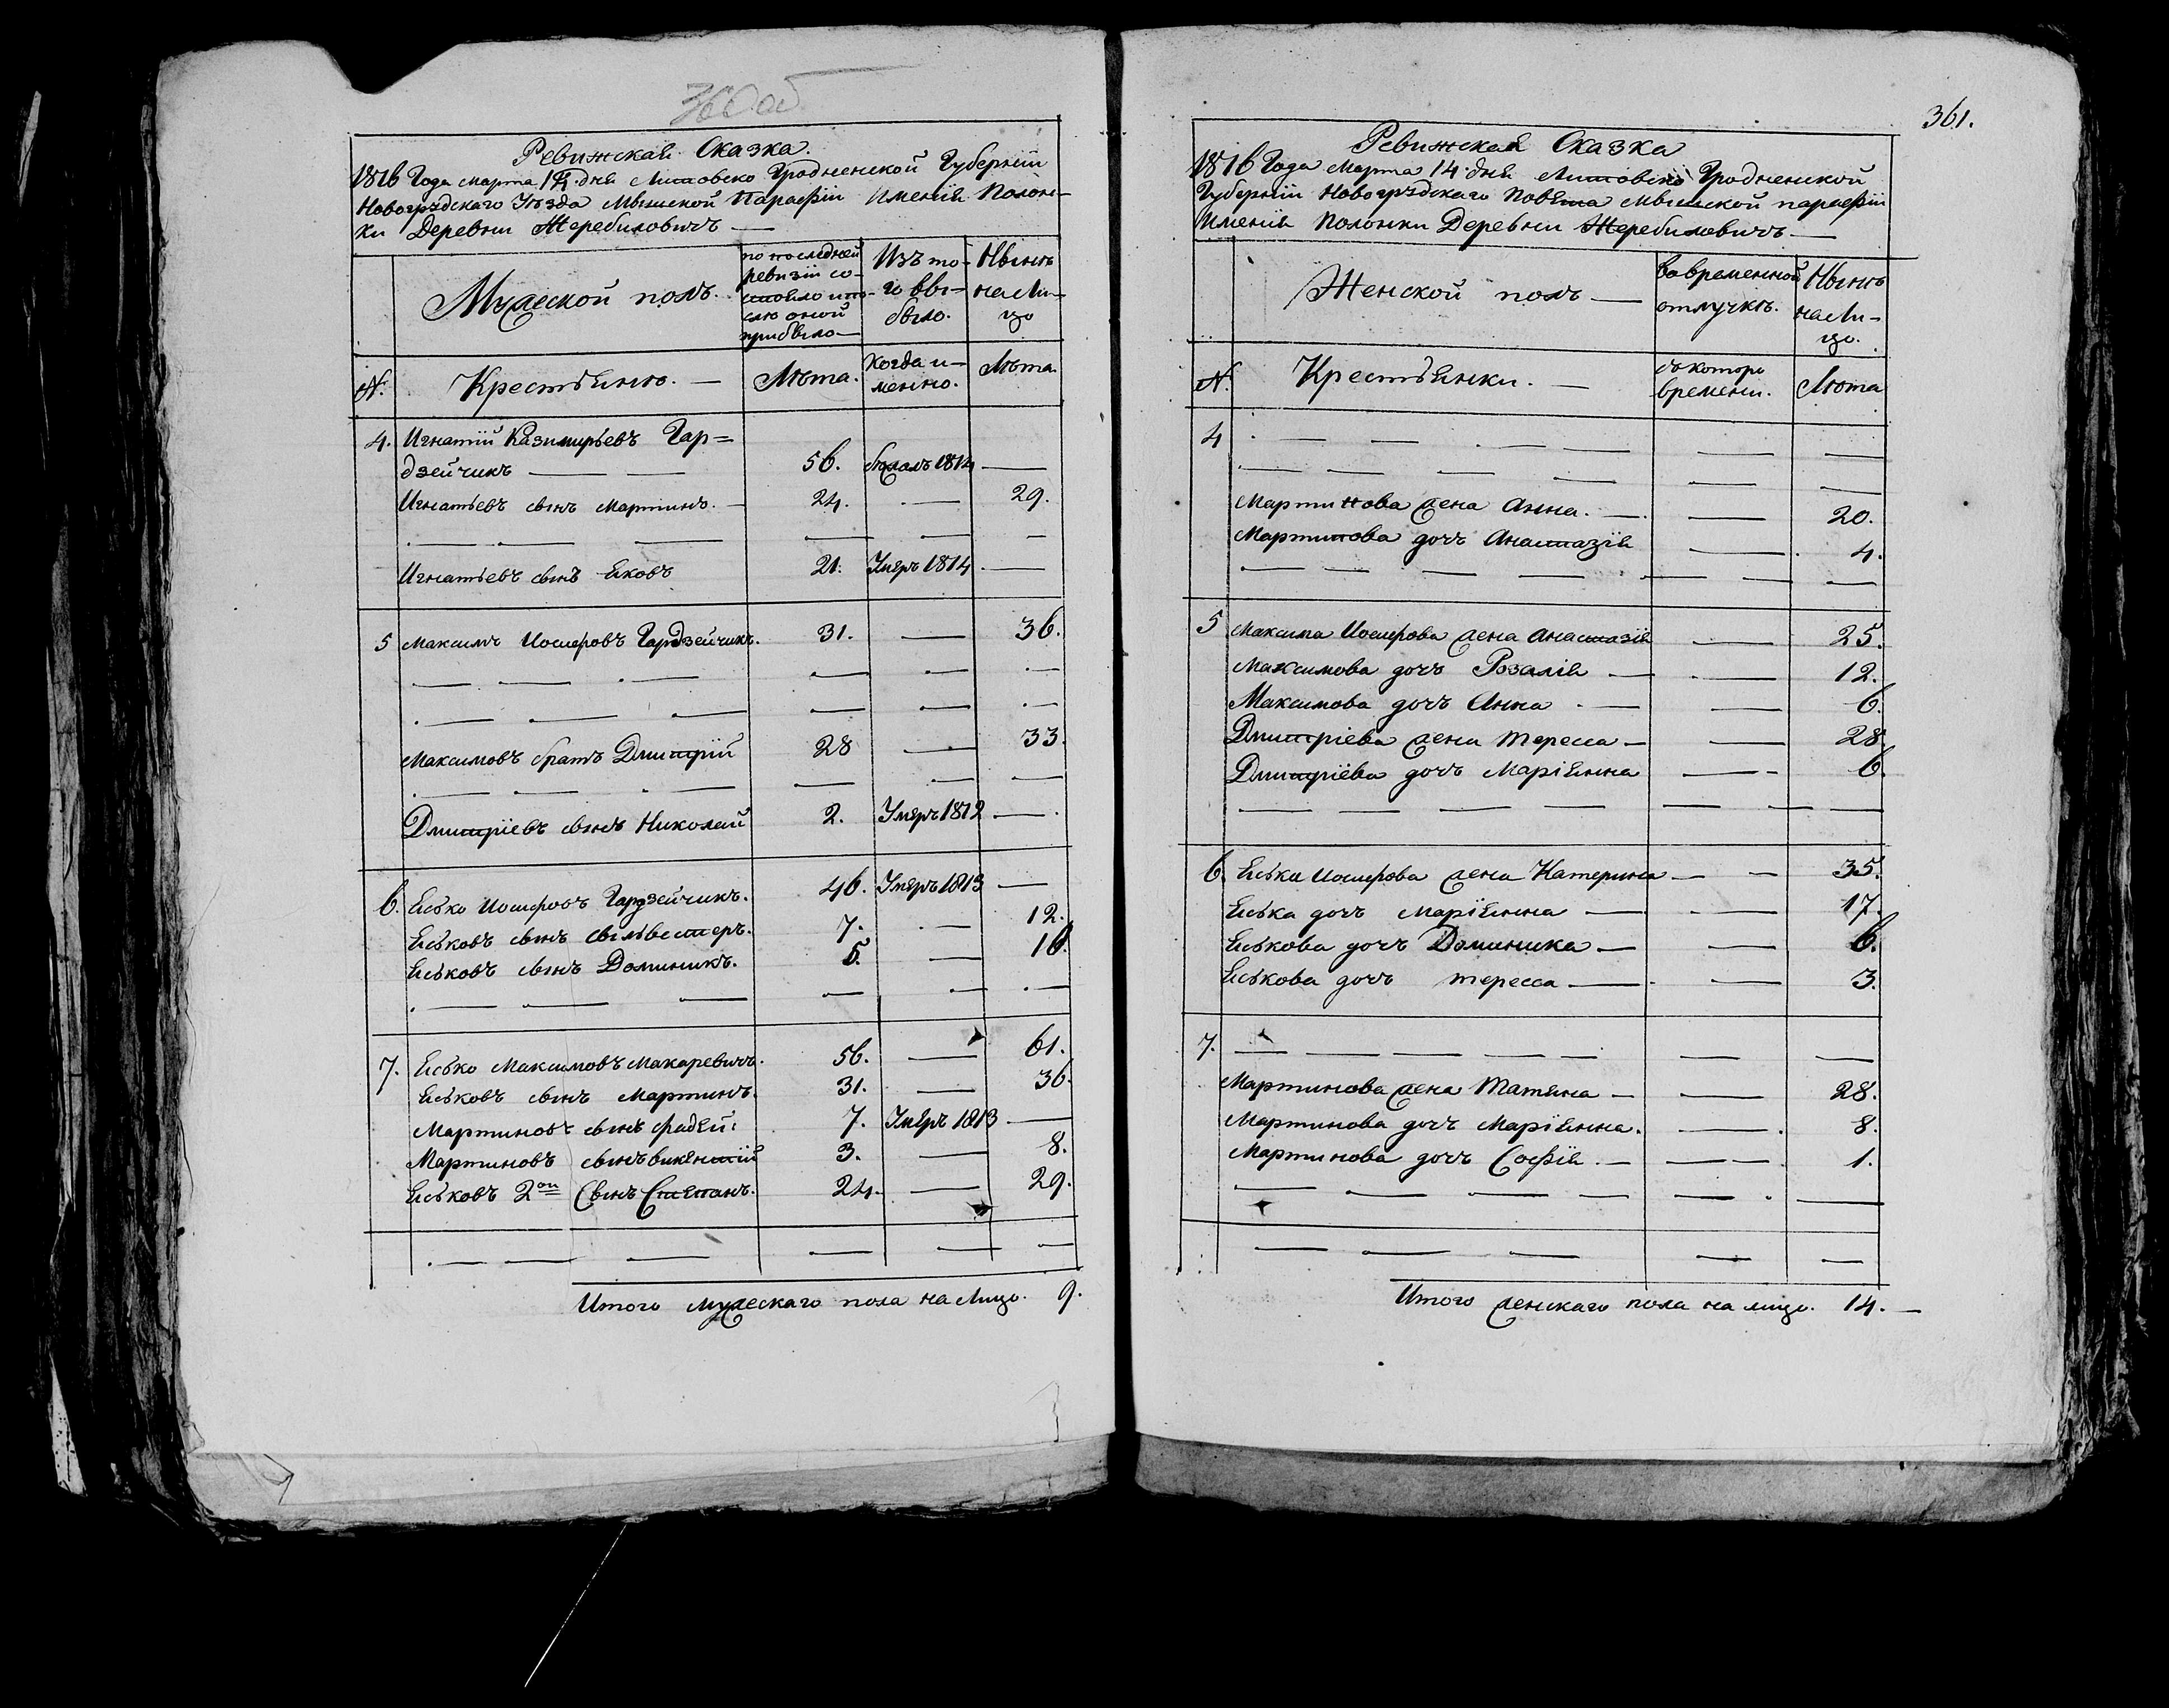 360 об
Ревижская Сказка.
1816 Года Марта 14 дня Литовско Гродненской Губернїи
Новогрудскаго Уезда Мышской Парафїи Имения Полон-
ки Деревни Жеребиловичъ —
Мужской полъ.
по последней
ревизїи со-
стояло и по-
сле оной
прибыло —
Изъ то-
го вы-
было.
Нынѣ
на Ли-
цо
№.
Крестьяне. —
Лѣта.
Когда и-
менно.
Лѣта
4. Игнатїй Казимирьевъ Гар=
дзейчикъ — — 56. бежалъ 1814 —
Игнатьевъ сынъ Мартинъ. — 24. — 29.
Игнатьевъ сынъ Яковъ 21. Умеръ 1814 —
5 Максимъ Иосифовъ Гардзейчикъ. 31. — 36.
Максимовъ братъ Дмитрїй 28 — 33.
Дмитрїевъ сынъ Николай 2. Умеръ 1812 —
6. Яську Иосифовъ Гардзейчикъ. 46. Умеръ 1813 —
Яськовъ сынъ Сылвестеръ. 7. — 12.
Яськовъ сынъ Доминикъ. 5. — 10.
7. Ясько Максимовъ Макаревичъ. 56. — 61.
Яськовъ сынъ Мартинъ. 31. — 36.
Мартиновъ сынъ Фадей: 7. Умеръ 1813 —
Мартиновъ сынъ Викентїй 3. — 8.
Яськовъ 2ой Сынъ Степанъ. 24. — 29.
Итого мужескаго пола на Лицо. 9.
361.
Ревижская Сказка
1816 Года Марта 14 дня Литовско Гродненской
Губернїи Новогрудскаго Повѣта Мышской парафїи
Имения Полонки Деревни Жеребиловичъ —
Женской полъ —
во временной
отлучкѣ.
Нынѣ
на Ли-
цо.
№.
Крестьянки. —
съ которо
времени.
Лѣта
4
Мартинова жена Анна. — — 20.
Мартинова дочь Анастазїя — 4.
5 Максима Иосифова жена Анастазїя — 25.
Максимова дочь Розалїя — — 12.
Максимова дочь Анна — — 6.
Дмитрїева жена Тересса — — 28.
Дмитрїева дочь Марїянна — 6.
6. Яська Иосифова жена Катерина — — 35.
Яська дочь Марїянна — — 17.
Яськова дочь Доминика — — 6.
Яськова дочь Тересса — — 3.
7.
Мартинова жена Татяна — — 28.
Мартинова дочь Марїянна. — 8.
Мартинова дочь Софїя. — — 1.
Итого женскаго пола на лицо. 14. —